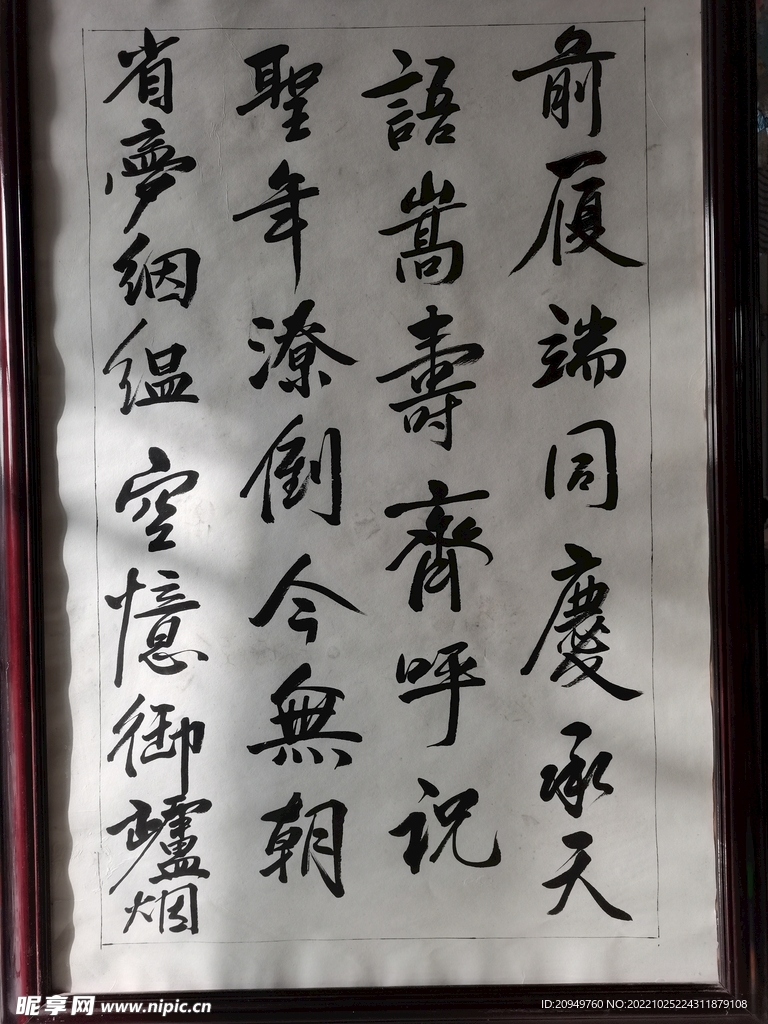 前履端同慶承天
語嵩壽齊呼祝
聖年潦倒今無朝
省夢絪縕空憶御爐烟
昵享网 www.nipic.cn
ID:20949760 NO:20221025224311879108